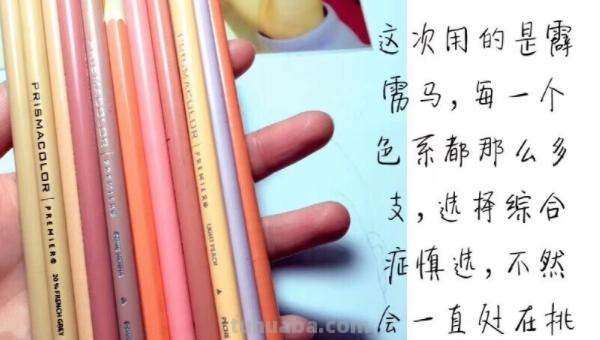 这次用的是霹
雳马，每一个
色系都那么多
支，选择综合
症慎选，不然
会一直处在挑
PRISMACOLOR | PREMIER® 20% FRENCH GREY
PRISMACOLOR | PREMIER® LIGHT PEACH
PREMIER®
PÊCHE
tuhuaba.com